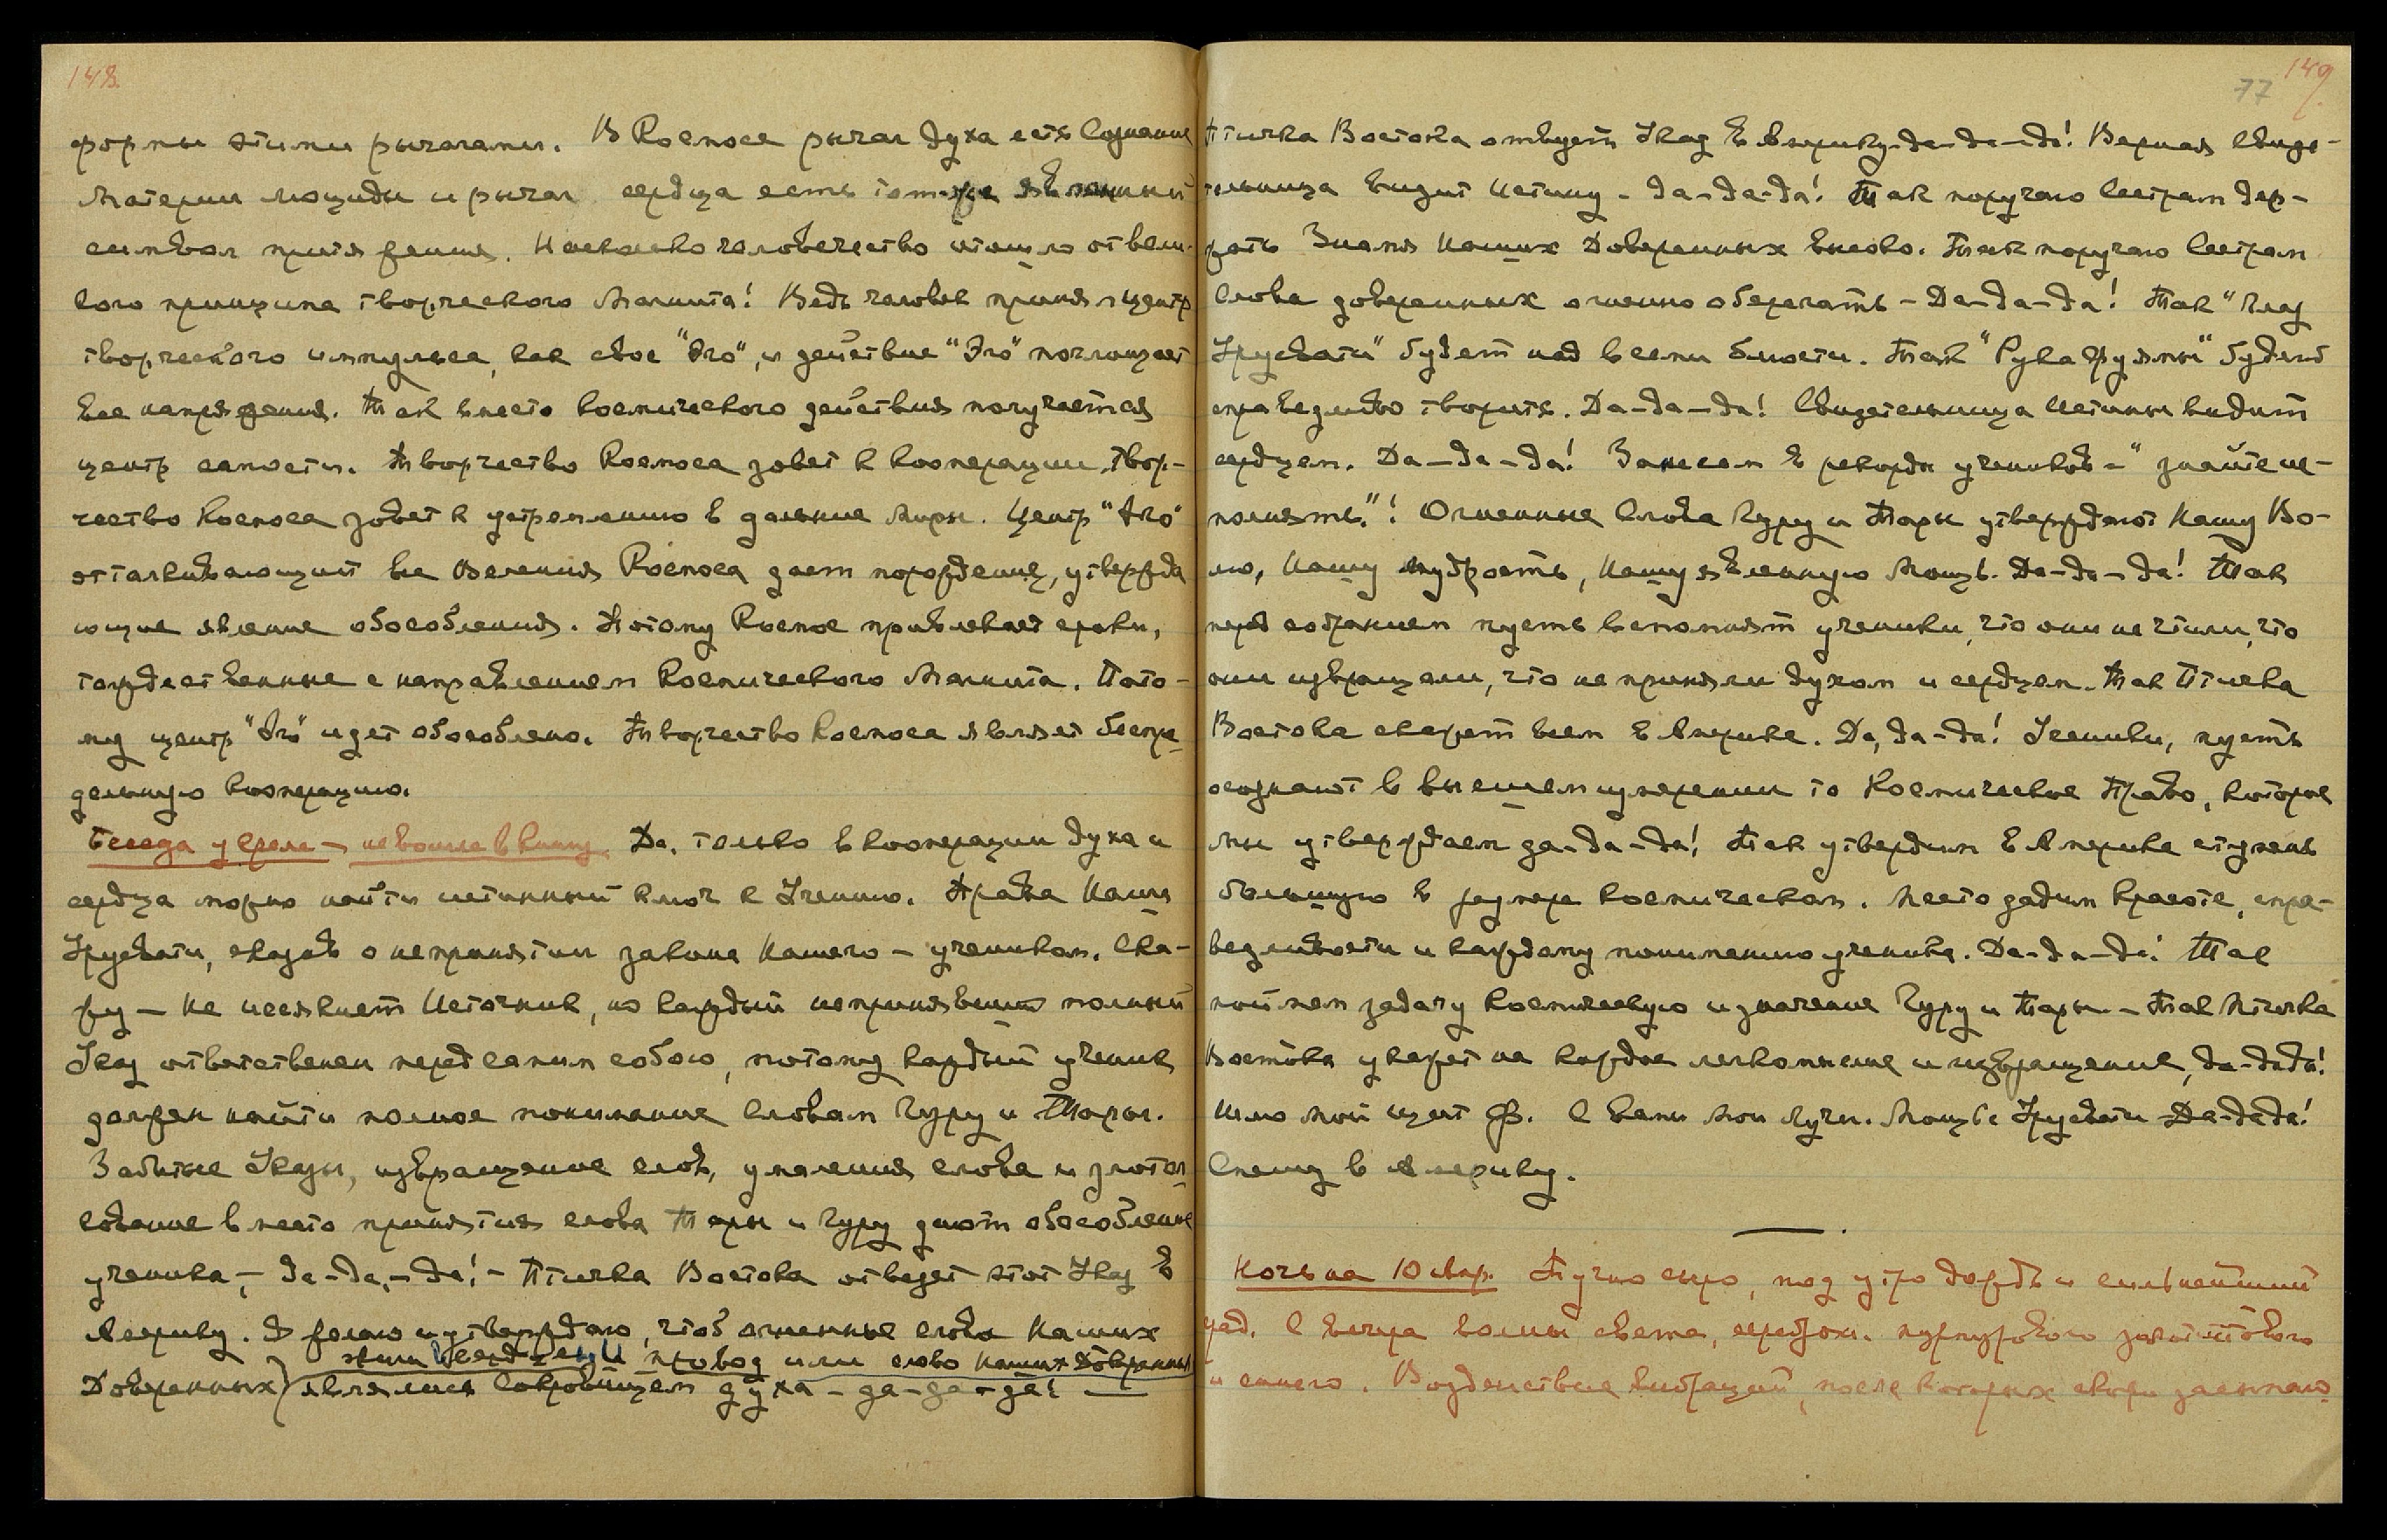 148.
формы этими рычагами. В Космосе рычаг духа есть Сознание
Материи Люциды и рычаг сердца есть тот-же явленный
символ притяжения. Насколько человечество отошло от вели-
кого принципа творческого Магнита! Ведь человек принял центр
творческого импульса, как свое "Эго", и действие "Эго" поглощает
все напряжения. Так вместо космического действия получается
центр самости. Творчество Космоса зовет к кооперации, твор-
чество Космоса зовет к устремлению в дальние Миры. Центр "Эго"
отталкивающий все Веления Космоса дает порождения, утвержда
ющие явление обособления. Потому Космос привлекает сроки,
тождественные с направлением Космического Магнита. Пото-
му центр "Эго" идет обособлено. Творчество Космоса являет беспре-
дельную кооперацию.
Беседа у срока – не вошла в книгу. Да, только в кооперации духа и
сердца можно найти истинный ключ к Учению. Права Наша
Урусвати, сказав о непринятии закона Нашего – ученикам. Ска-
жу – Не иссякнет Источник, но каждый непринявший полный
Указ ответственен перед самим собою, потому каждый ученик
должен найти полное понимание Словам Гуру и Тары.
Забытые Указы, извращение слов, умаления слова и злотол-
кование вместо принятия слова Тары и Гуру дают обособление
ученика, – да-да, – да! – Птичка Востока отвезет этот Указ в
Америку. Я желаю и утверждаю, чтоб огненные слова Наших
провод или слово Наших Доверенных
Доверенных являлись Сокровищем духа – да-да-да! —
149
77
Птичка Востока отвезет Указ в Америку-да-да-да! Верная Свиде-
тельница видит Истину – да-да-да! Так поручаю Сестрам дер-
жать Знамя Наших Доверенных высоко. Так поручаю Сестрам
Слова доверенных огненно оберегать – Да-да-да! Так "Глаз
Урусвати" будет над всеми блюсти. Так "Рука Фуямы" будет
справедливо творить. Да-да-да! Свидетельница Истины видит
сердцем. Да-да-да! Занесем в рекорды учеников – "знайте ис-
полнять"! Огненные Слова Гуру и Тары утверждают Нашу Во-
лю, Нашу мудрость, Нашу явленную Мощь. Да-да-да! Так
перед собранием пусть вспомнят ученики, что они не чтили, что
они извращали, что не приняли духом и сердцем. Так Птичка
Востока скажет всем в Америке. Да, да-да! Ученики, пусть
осознают в высшем измерении то Космическое Право, которое
Мы утверждаем да-да-да! Так утвердим в Америке ступень
большую в размере космическом. Место дадим красоте, спра-
ведливости и каждому пониманию ученика. Да-да-да! Так
поймем задачу космическую и значение Гуру и Тары – Так Птичка
Востока укажет на каждое легкомыслие и извращение, да-да-да!
Шлю Мой щит Ф. С вами Мои Лучи. Мощь с Урусвати – Да-да-да!
Спешу в Америку.
Ночь на 10 янв. Тучно сыро, под утро дождь и сильнейший
град. С вечера волны света, серебрян. пурпурового
и синего. Воздействие вибраций, после которых скоро засыпаю.